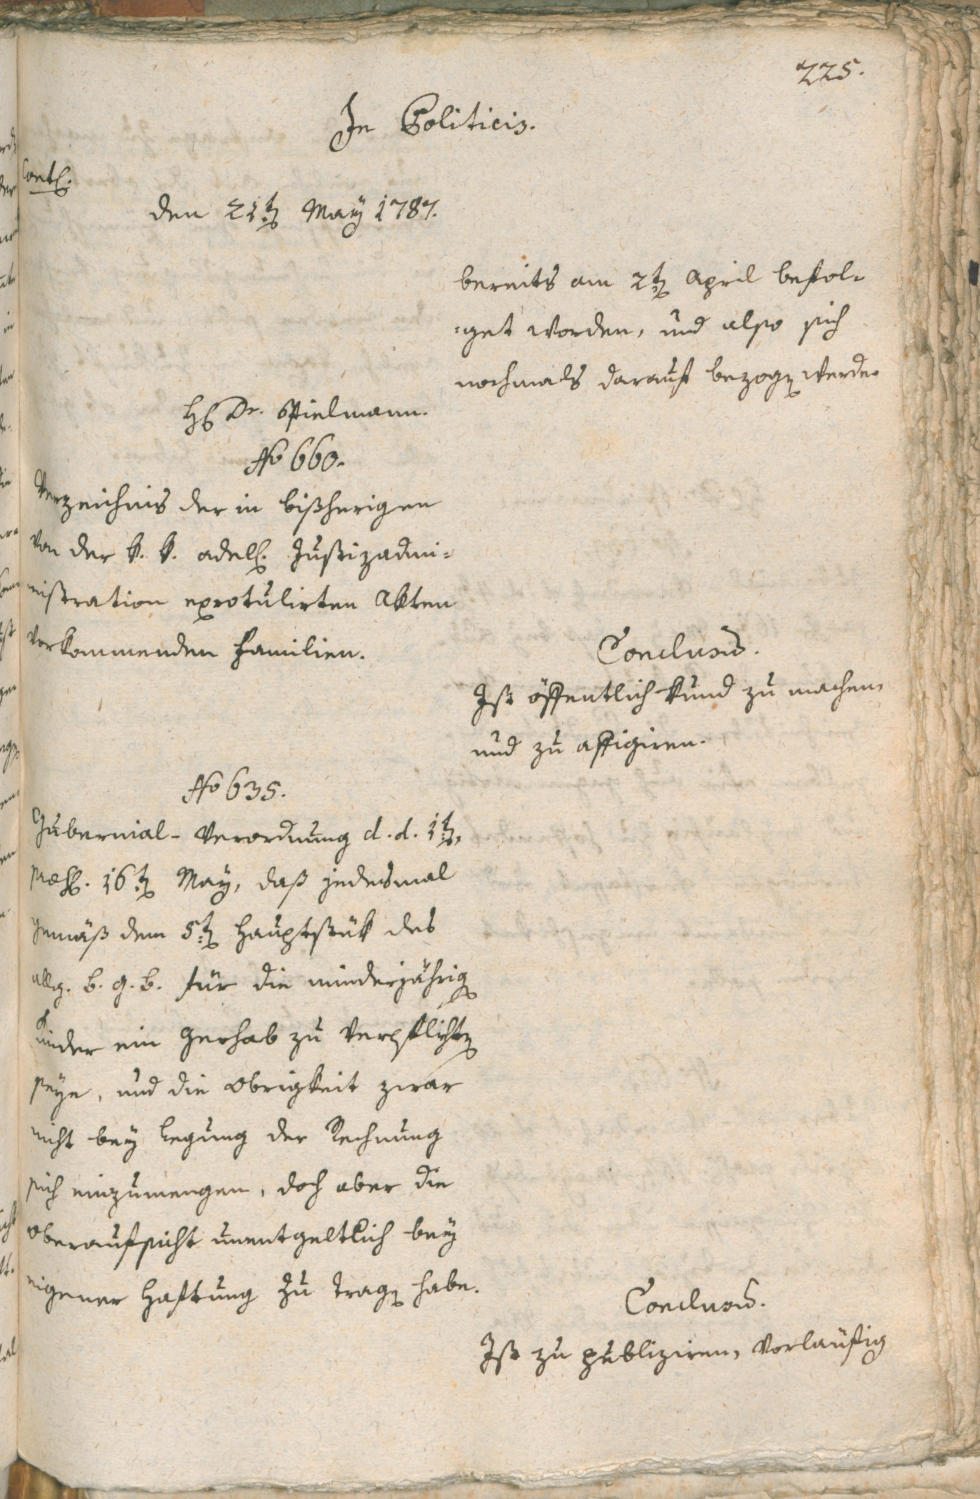 225.
In Politicis.
Cont.
den 21t. May 1787.
bereits am 2t. April befol-
-get worden, und also sich
nochmals darauf bezogen werde.
H. Dr. Spielmann.
No 660.
Verzeichnis der in bißherigen
von der k. k. adel. Justizadmi-
nistration exrotulirten Akten
vorkommenden Familien.
Conclusum.
Ist öffentlich kund zu machen,
und zu affigiren.
No 635.
Gubernial-Verordnung d. d. 1t.,
præs. 16t. May, daß jedesmal
gemäß dem 5t. Hauptstük des
allg. b. g. b. für die minderjährig
Kinder ein Gerhab zu verpflichten
seye, und die Obrigkeit zwar
nicht bey Legung der Rechnung
sich einzumengen, doch aber die
Oberaufsicht unentgeltlich bey
eigener Haftung zu tragen habe.
Conclusum.
Ist zu publiziren, vorläufig